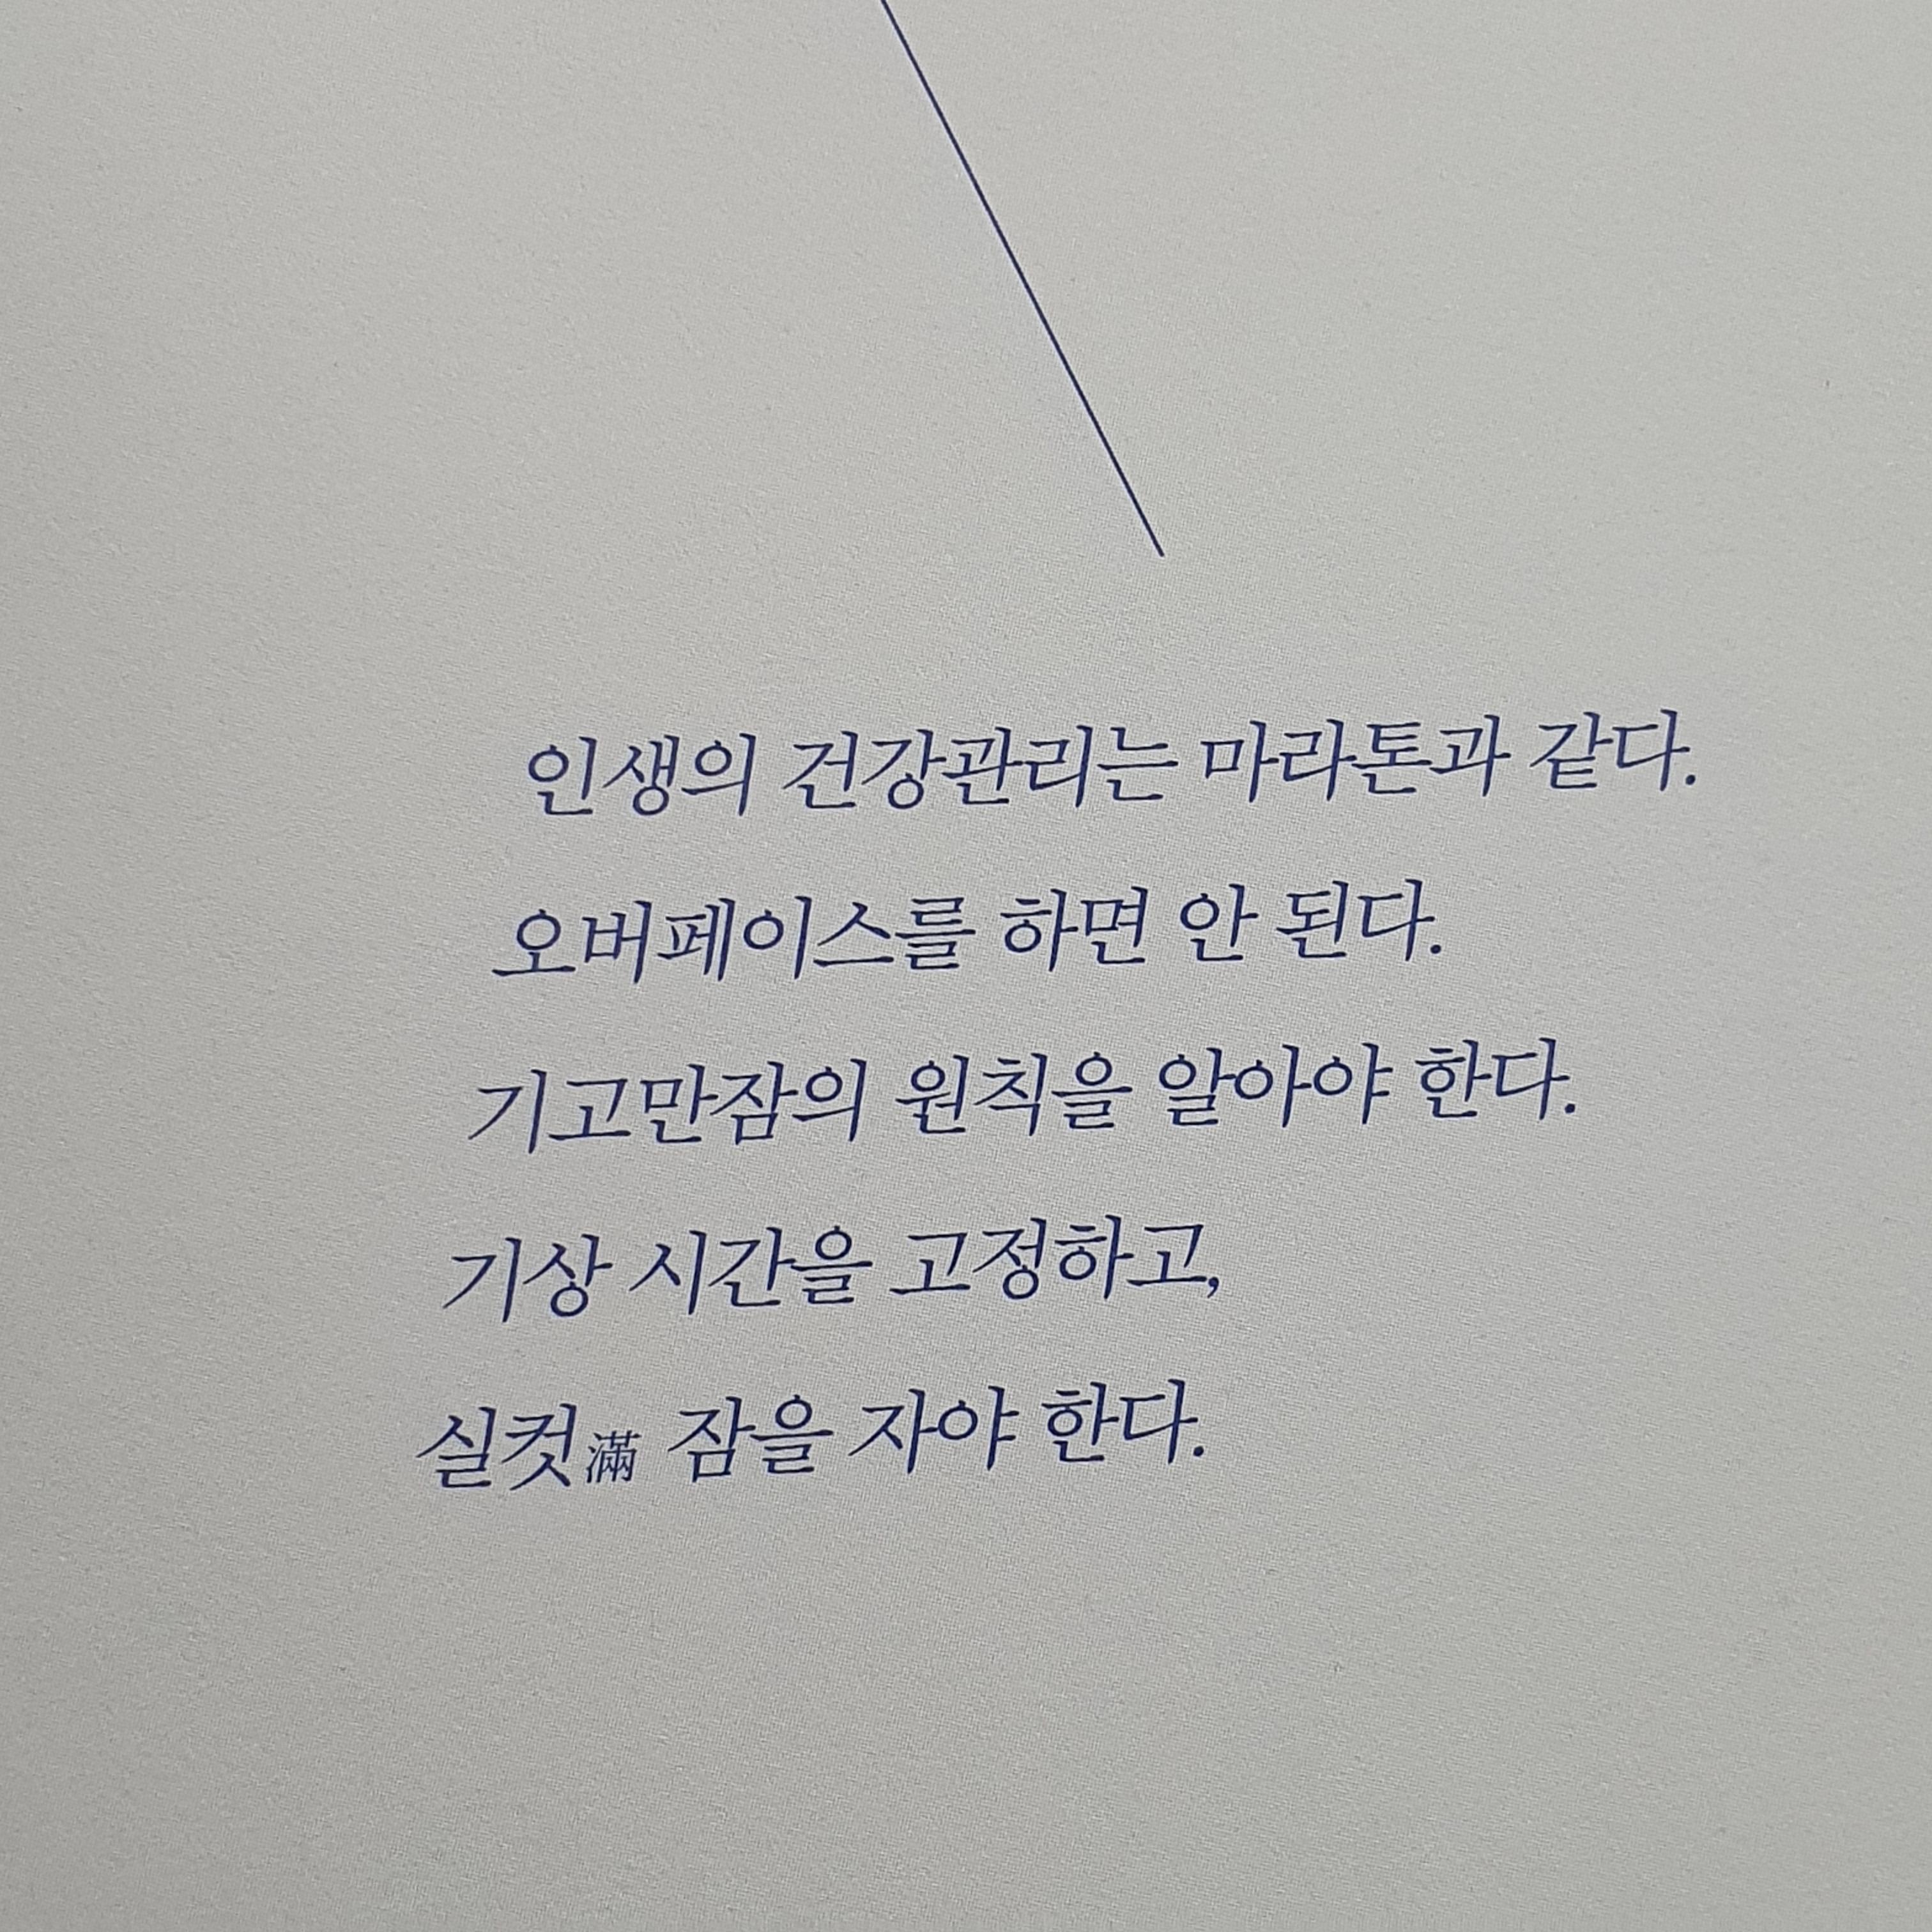 인생의 건강관리는 마라톤과 같다.
오버페이스를 하면 안 된다.
기고만잠의 원칙을 알아야 한다.
기상 시간을 고정하고,
실컷滿 잠을 자야 한다.